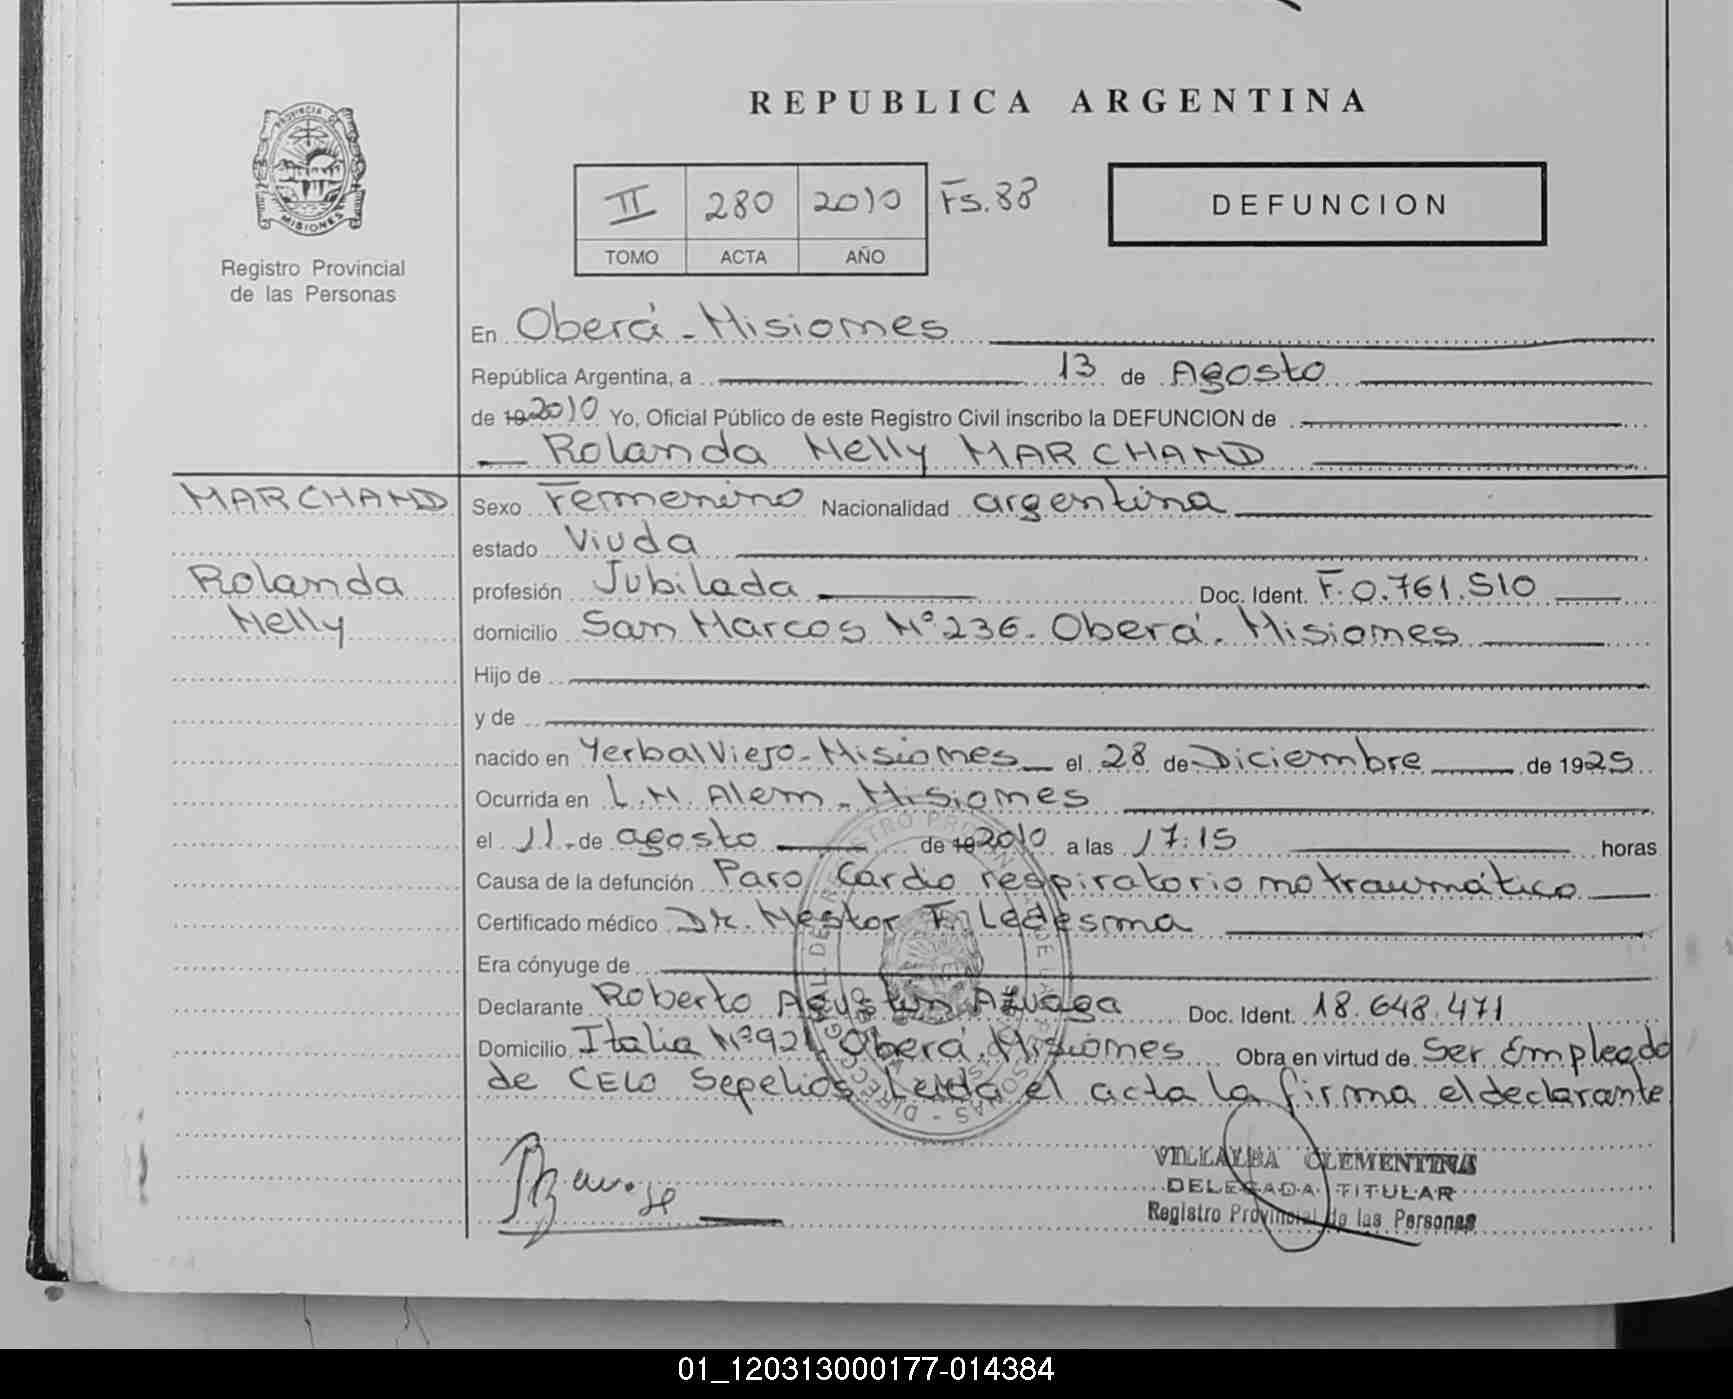 REPUBLICA ARGENTINA
PROVINCIA DE
MISIONES
Registro Provincial
de las Personas
II 280 2010 Fs. 88
TOMO ACTA AÑO
DEFUNCION
En Oberá - Misiones
República Argentina, a 13 de Agosto
de 19 2010 Yo, Oficial Público de este Registro Civil inscribo la DEFUNCION de
Rolanda Nelly MARCHAND
MARCHAND
Rolanda
Nelly
Sexo Femenino Nacionalidad argentina
estado Viuda
profesión Jubilada Doc. Ident. F. 0.761.510
domicilio San Marcos Nº 236. Oberá. Misiones
Hijo de
y de
nacido en Yerbal Viejo - Misiones el 28 de Diciembre de 1925
Ocurrida en L.N. Alem - Misiones
el 11 de agosto de 19 2010 a las 17:15 horas
Causa de la defunción Paro Cardio respiratorio no traumático
Certificado médico Dr. Nestor F. Ledesma
Era cónyuge de
Declarante Roberto Agustin Azuaga Doc. Ident. 18.648.471
Domicilio Italia Nº 921 Oberá. Misiones Obra en virtud de Ser Empleado
de CELO Sepelios. Leida el acta la firma el declarante
VILLALBA CLEMENTINA
DELEGADA TITULAR
Registro Provincial de las Personas
01_120313000177-014384